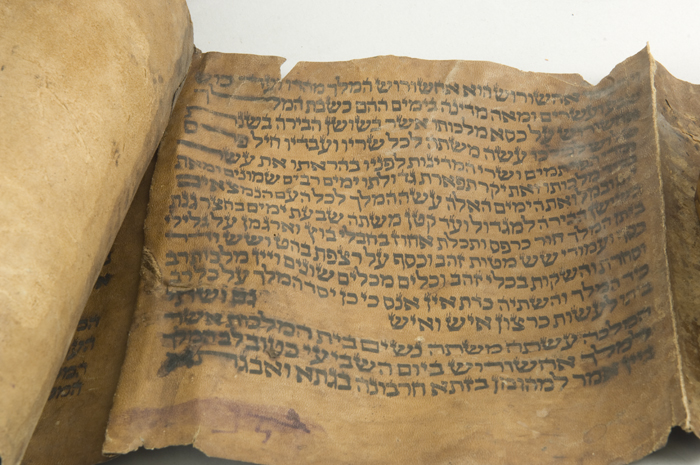 אחשורוש הוא אחשורוש המלך מהדו ועד כוש
ועשרים ומאה מדינה בימים ההם כשבת המלך
על כסא מלכותו אשר בשושן הבירה בשנת
עשה משתה לכל שריו ועבדיו חיל
ושרי המדינות לפניו בהראתו את עשר
מלכותו ואת יקר תפארת גדולתו ימים רבים שמונים ומאת
הימים האלה עשה המלך לכל העם הנמצאים
הבירה למגדול ועד קטן משתה שבעת ימים בחצר גנת
ביתן המלך חור כרפס ותכלת אחוז בחבלי בוץ וארגמן על גלילי
כסף ועמודי שש מטות זהב וכסף על רצפת בהט ושש
וסחרת והשקות בכלי זהב וכלים מכלים שונים ויין מלכות רב
כיד המלך והשתיה כדת אין אנס כי כן יסד המלך על כל רב
ביתו לעשות כרצון איש ואיש גם ושתי
המלכה עשתה משתה נשים בית המלכות אשר
למלך אחשורוש ביום השביעי כטוב לב המלך
ביין אמר למהומן בזתא חרבונה בגתא